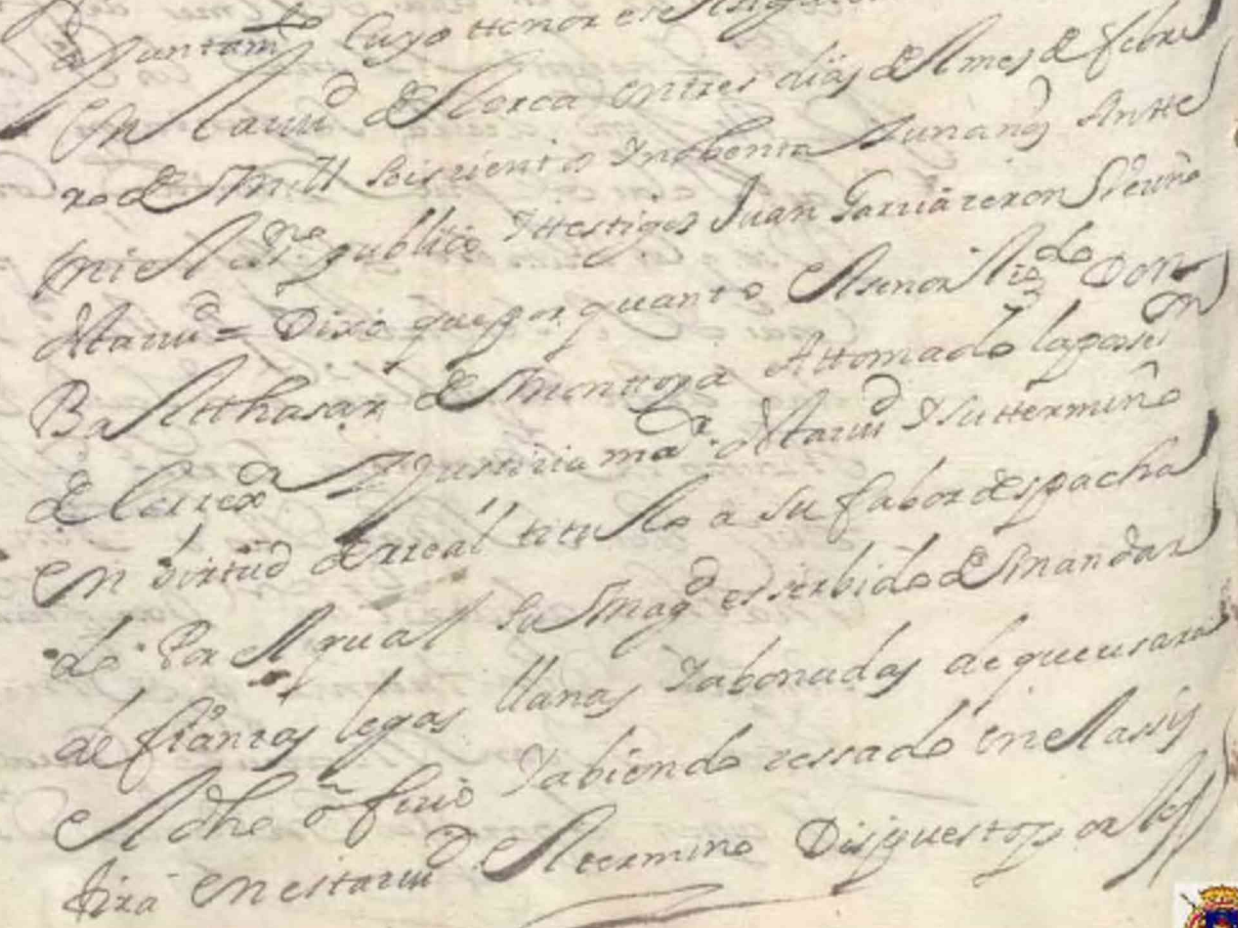 Ajuntamto cuyo thenor es el siguiente
En la ciud de Lorca en tres dias del mes de febre
ro de mill seiscientos y nobenta y un anos Antte
mi el esno publico y ttestigos Juan Garcia zeron Ssno
desta ciud = Dixo que por quanto el senor Lizdo Don
Balthasar de Monttoya a ttomado la posesn
de Correxr y Justicia mar desta ciud y su ttermino
en birtud de rreal titulo a su fabor despacha
do Por el qual su Magd es serbido de mandar
de fianzas legas llanas y abonadas de que usara
el dho oficio y abiendo cessado en el assis
tira en esta ciud el termino Dispuesto por les